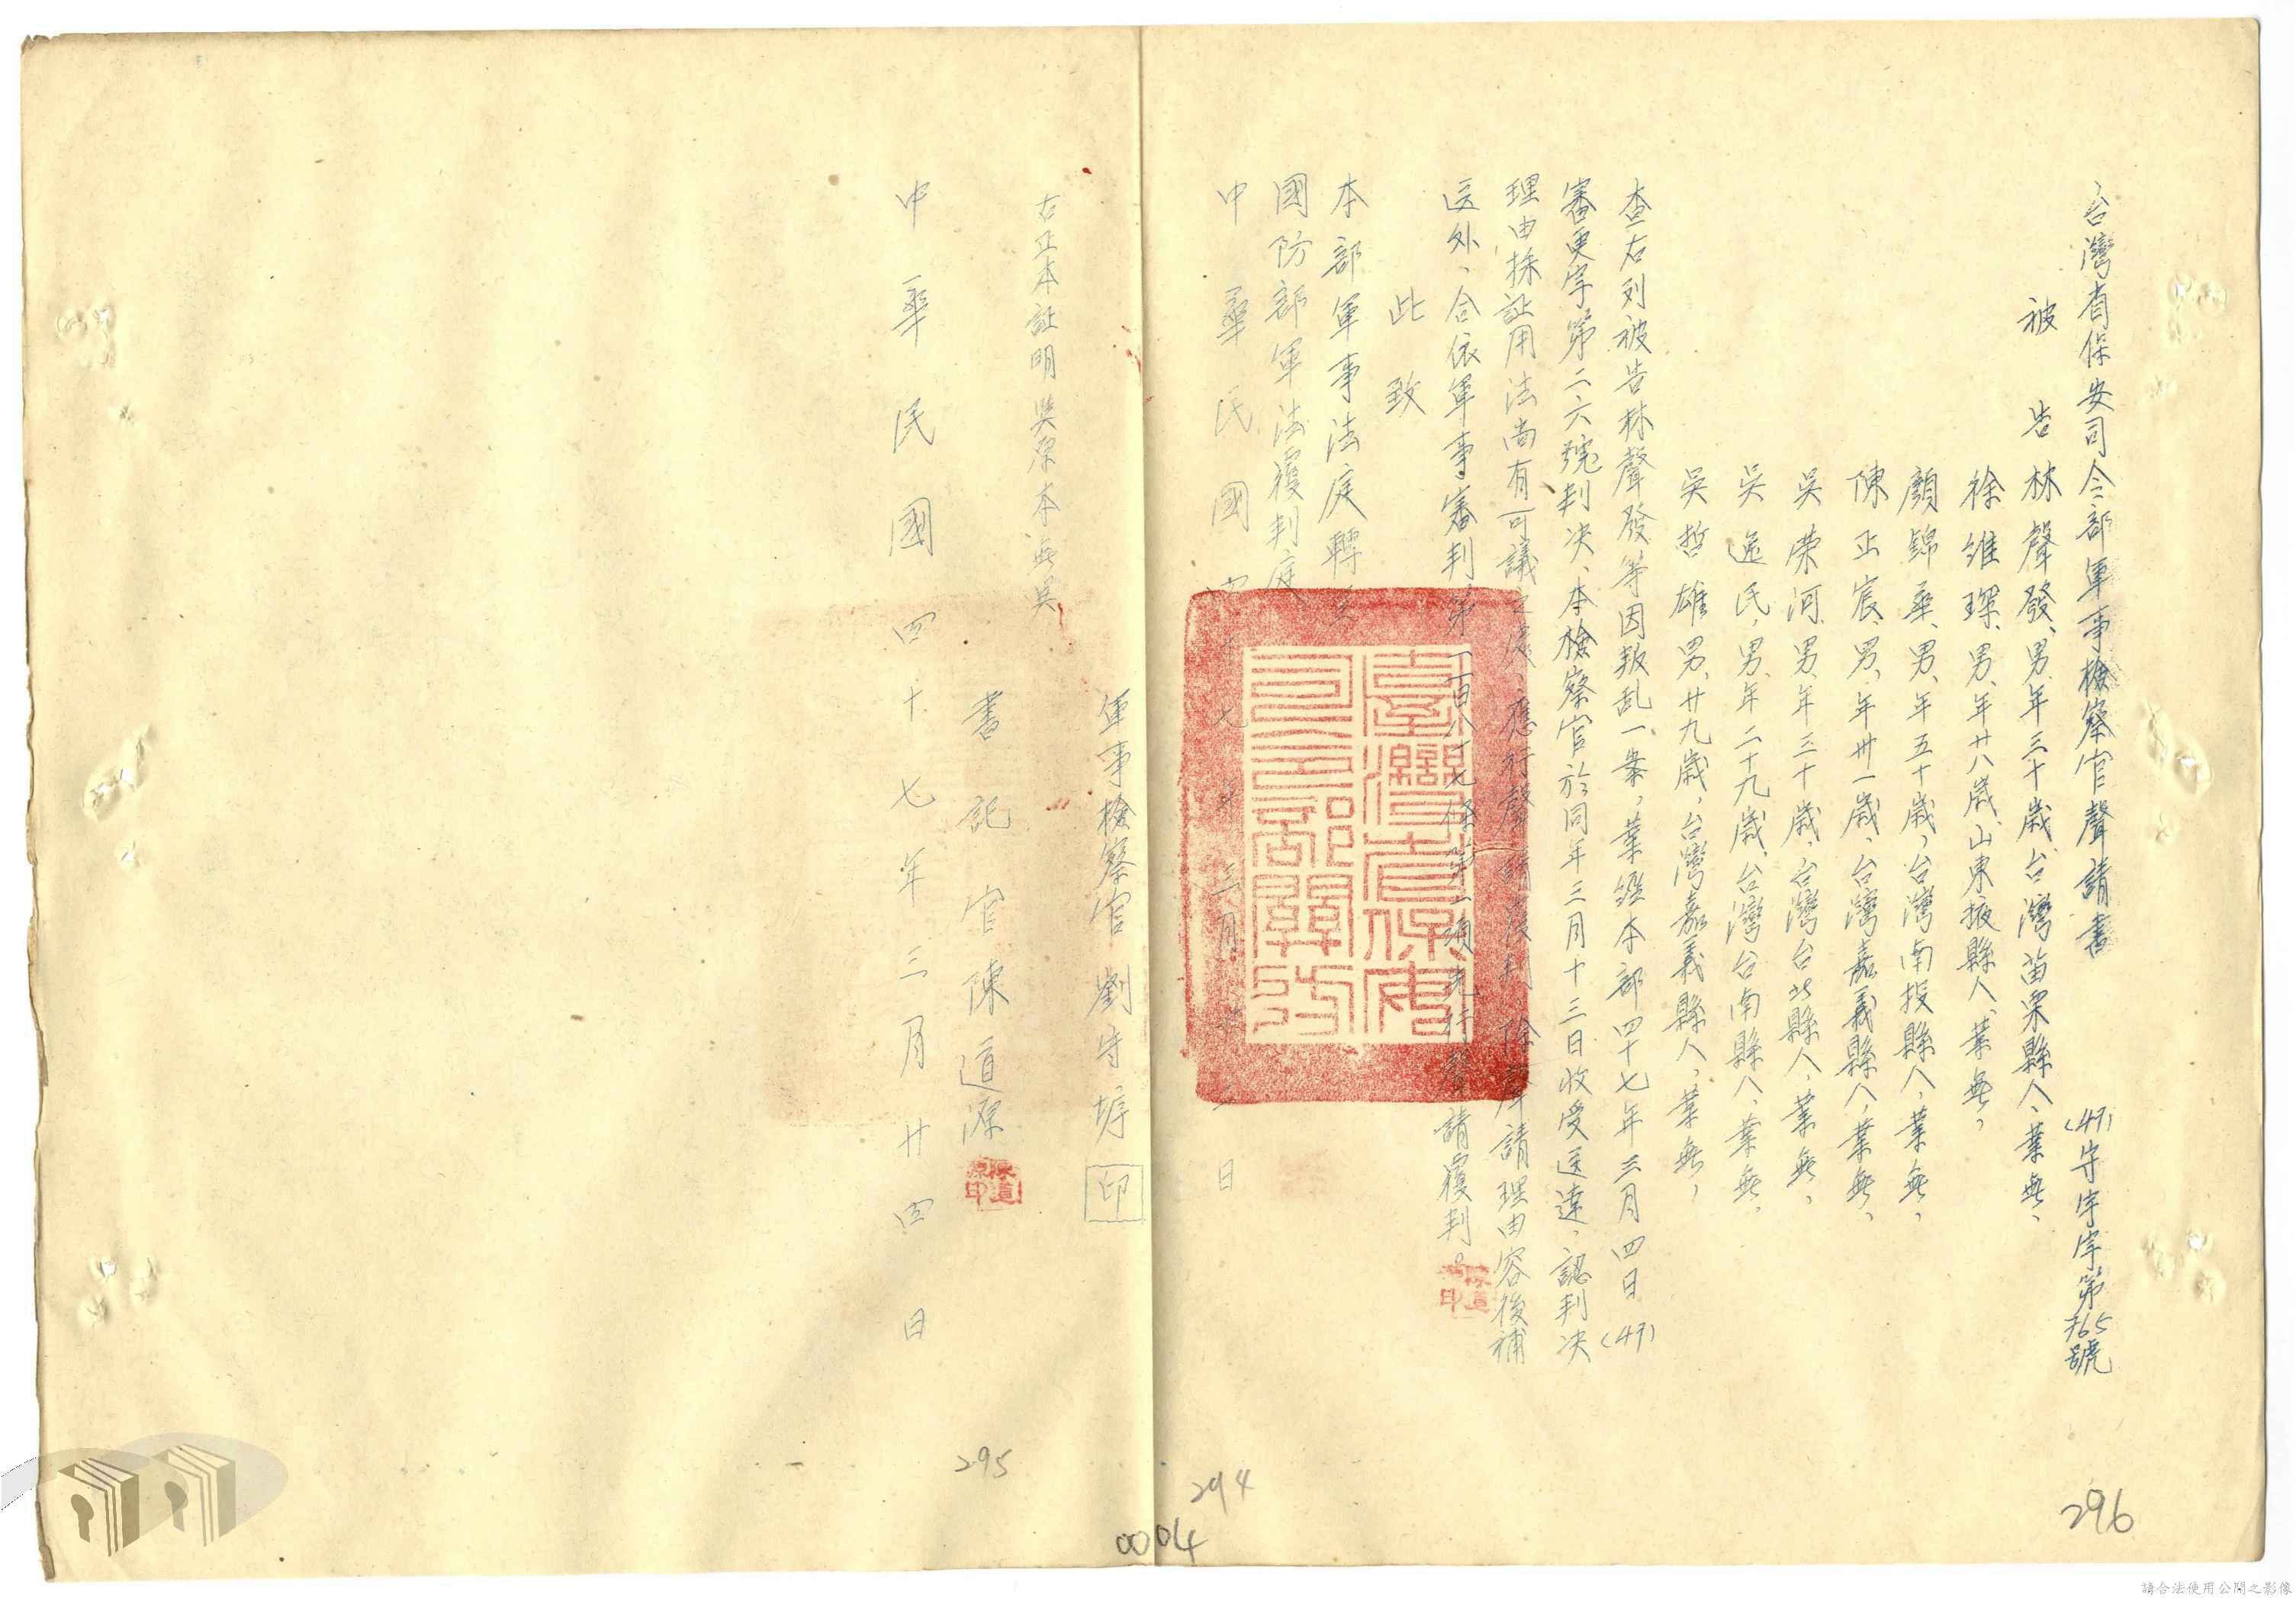 台灣省保安司令部軍事檢察官聲請書
(47)守字第765號
被告林聲發、男、年三十歲、台灣苗栗縣人、業無、
徐維琛、男、年廿八歲、山東掖縣人、業無、
顏錦華、男、年五十歲、台灣南投縣人、業無、
陳正宸、男、年卅一歲、台灣嘉義縣人、業無、
吳榮河、男、年三十歲、台灣台北縣人、業無、
吳逸民、男、年二十九歲、台灣台南縣人、業無、
吳哲雄、男、廿九歲、台灣嘉義縣人、業無、
查右列被告林聲發等因叛乱一案，業經本部四十七年三月四日(47)
審更字第二六號判决、本檢察官於同年三月十三日收受送達、認判决
理由採証用法尚有可議之處、應行聲請覆判、除聲請理由容後補
送外、合依軍事審判第一百八十七條第一項先行聲請覆判。
此致
本部軍事法庭轉呈
國防部軍法覆判庭
中華民國四十七年三月日
軍事檢察官劉守 印
右正本証明與原本無異
書記官陳道源
中華民國四十七年三月廿四日
陳道源印
臺灣省保安司令部關防
296
294
295
0004
請合法使用公開之影像